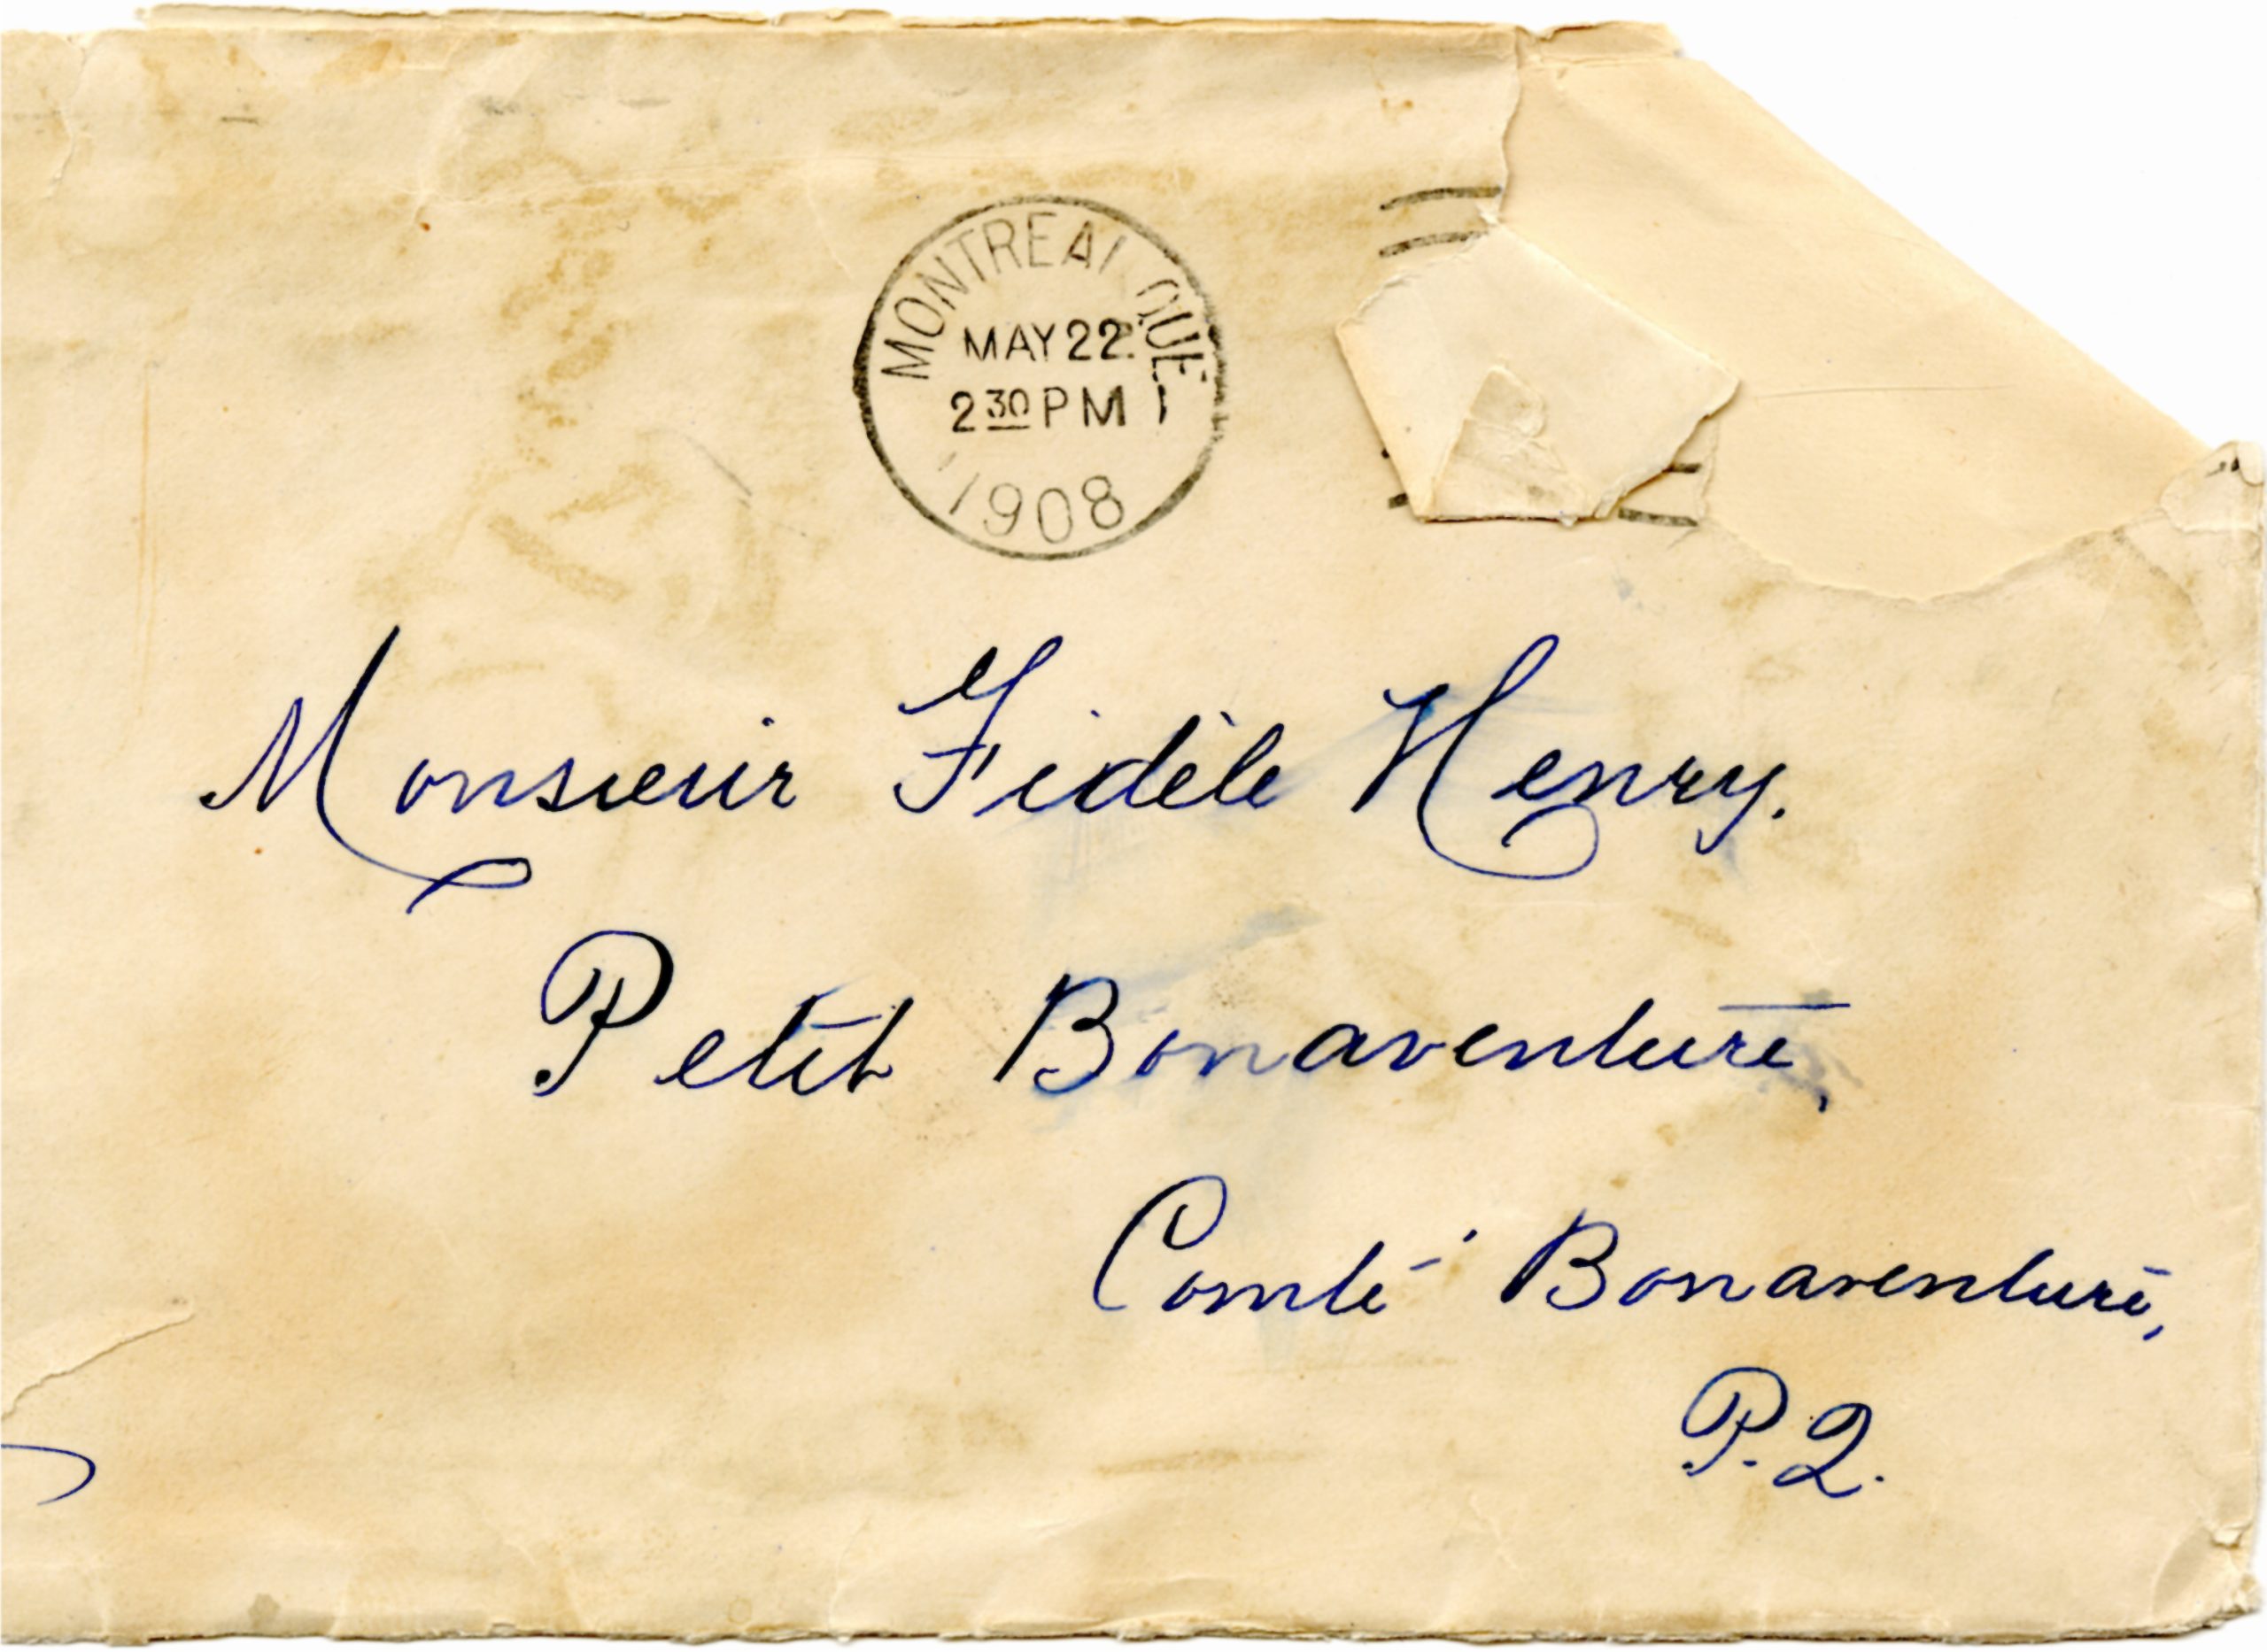 MONTREAL QUE.
MAY 22.
2 30 PM
1908
Monsieur Fidèle Henry.
Petit Bonaventure,
Comté Bonaventure,
P.Q.